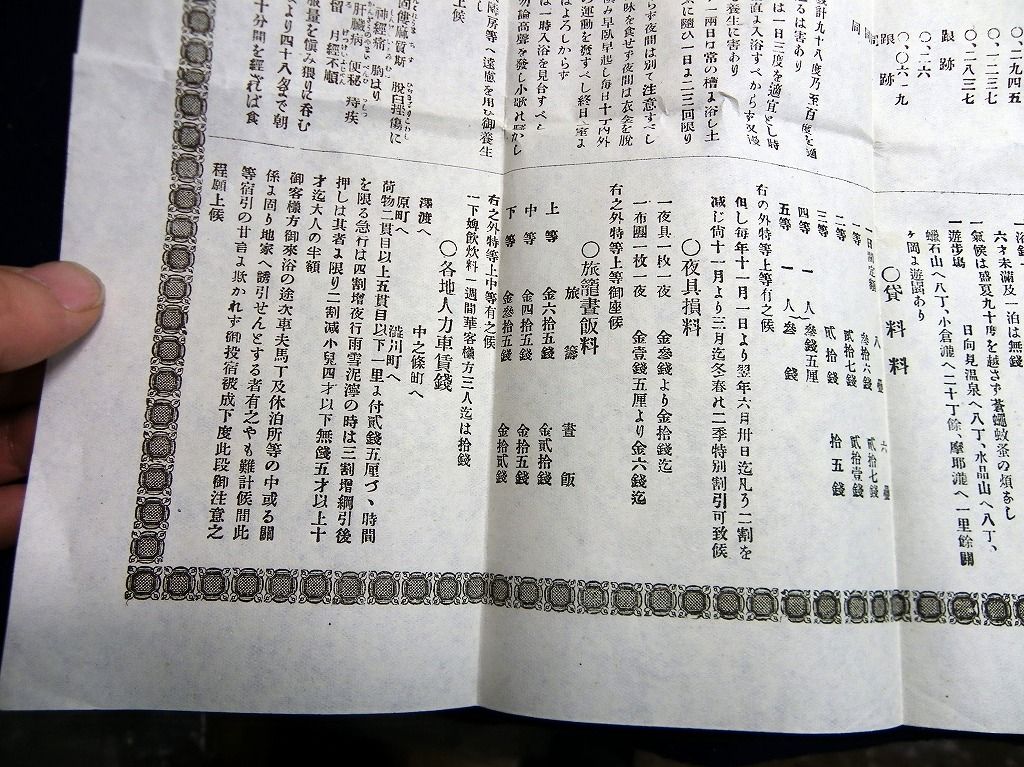 〇、二九四五
〇、一二三七
〇、二八三七
跟跡
〇、二六
〇、〇六一九
跟跡
同
設計九十八度乃至百度を適
るは害あり
は一日三度を適宜とし時
直ま入浴すべからす又浸
養生に害あり
一兩日は常の槽ま浴し土
に隨ひ一日ま二三回限り
らず夜間は別て注意すべし
味を食せず夜間は衣衾を脱
み早臥早起し毎日十丁内外
の運動を發すべし終日室ま
はよろしからず
は一時入浴を見合すべし
勿論高聲を發し小歌れ騷がし
房等へ遠慮を用ひ御養生
上候
僂麻質斯 脱臼挫傷に
神經痛 胸はり
肝臟病 便秘 痔疾
留 月經不順
服量を愼み猥りに呑む
より四十八匁まで朝
十分間を經ざれば食
六才未滿及一泊は無錢
一氣候は盛夏九十度を越さず蒼蠅蚊蚤の煩なし
一遊歩塲 日向見温泉へ八丁、水晶山へ八丁、
蠟石山へ八丁、小倉瀧へ二十丁餘、摩耶瀧へ一里餘關
ヶ岡ま遊園あり
〇貸料料
八疊 六疊
一等 叁拾六錢 貳拾七錢
二等 貳拾七錢 貳拾壹錢
三等 貳拾錢 拾五錢
四等 一人 叁錢五厘
五等 一人 叁錢
右の外特等上等有之候
但し毎年十一月一日より翌年六月卅日迄凡う二割を
減じ尙十一月より三月迄冬春れ二季特別割引可致候
〇夜具損料
一夜具一枚一夜 金叁錢より金拾錢迄
一布團一枚一夜 金壹錢五厘より金六錢迄
右之外特等上等御座候
〇旅籠晝飯料
旅籌 晝飯
上等 金六拾五錢 金貳拾錢
中等 金四拾五錢 金拾五錢
下等 金叁拾五錢 金拾貳錢
右之外特等上中等有之候
一下婢飲炊料 一週間華客樣方三人迄は拾錢
〇各地人力車賃錢
澤渡へ 中之條町へ
原町へ 澁川町へ
荷物二貫目以上五貫目以下一里ま付貳錢五厘づヽ時間
を限る急行は四割增夜行雨雪泥濘の時は三割增綱引後
押しは其者ま限り二割減小兒四才以下無錢五才以上十
才迄大人の半額
御客樣方御來浴の途次車夫馬丁及休泊所等の中或る關
係ま固り地家へ誘引せんとする者有之やも難計候間此
等宿引の甘言ま欺かれず御投宿被成下度此段御注意之
程願上候